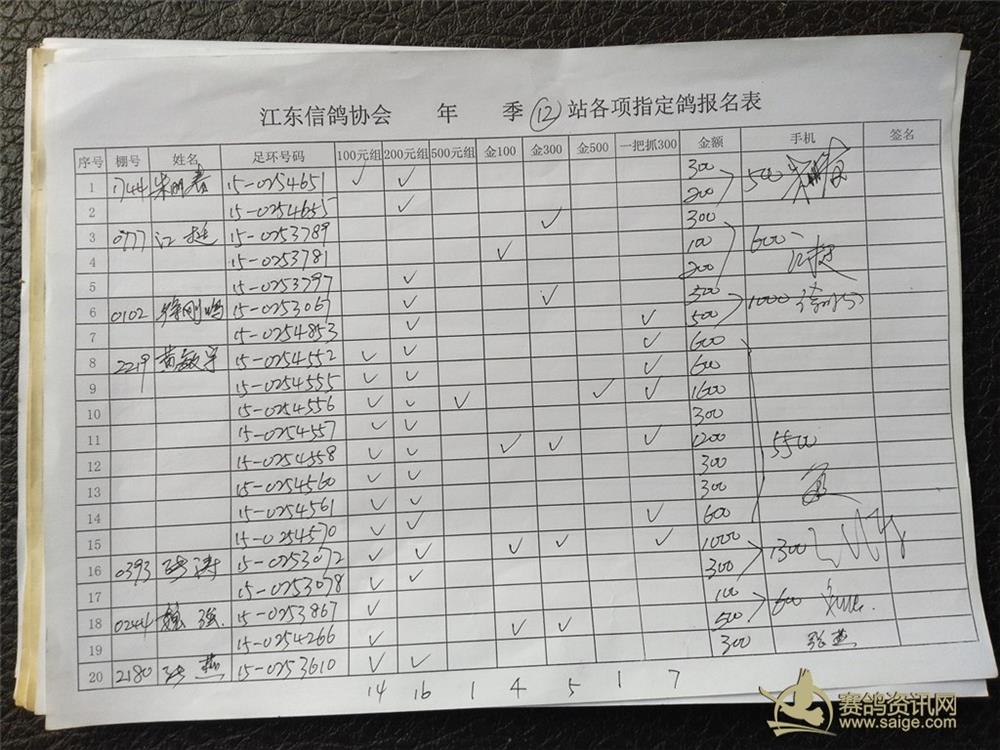 江东信鸽协会 年 季 ⑫ 站各项指定鸽报名表
序号 棚号 姓名 足环号码 100元组 200元组 500元组 金100 金300 金500 一把抓300 金额 手机 签名
1 1744 15-0254651 ✓ ✓ 300 500
2 15-0254655 ✓ 200
3 0777 江挺 15-0253789 ✓ 300
4 15-0253781 ✓ 100 600
5 15-0253797 ✓ 200 江挺
6 0102 徐刚鸣 15-0253067 ✓ ✓ 500 1000
7 15-0254853 ✓ ✓ 500
8 2219 黄敏宇 15-0254552 ✓ ✓ ✓ 600
9 15-0254555 ✓ ✓ ✓ 600
10 15-0254556 ✓ ✓ ✓ ✓ ✓ 1600
11 15-0254557 ✓ ✓ 300
12 15-0254558 ✓ ✓ ✓ ✓ ✓ 1200 5500
13 15-0254560 ✓ ✓ 300
14 15-0254561 ✓ ✓ 300
15 15-0254570 ✓ ✓ ✓ 600
16 0393 15-0253072 ✓ ✓ ✓ ✓ ✓ 1000 1300
17 15-0253078 ✓ ✓ 300
18 0244 魏强 15-0253867 ✓ 100 600
19 15-0254266 ✓ ✓ ✓ 500
20 2180 张燕 15-0253610 ✓ ✓ 300 张燕
14 16 1 4 5 1 7
赛鸽资讯网
www.saige.com